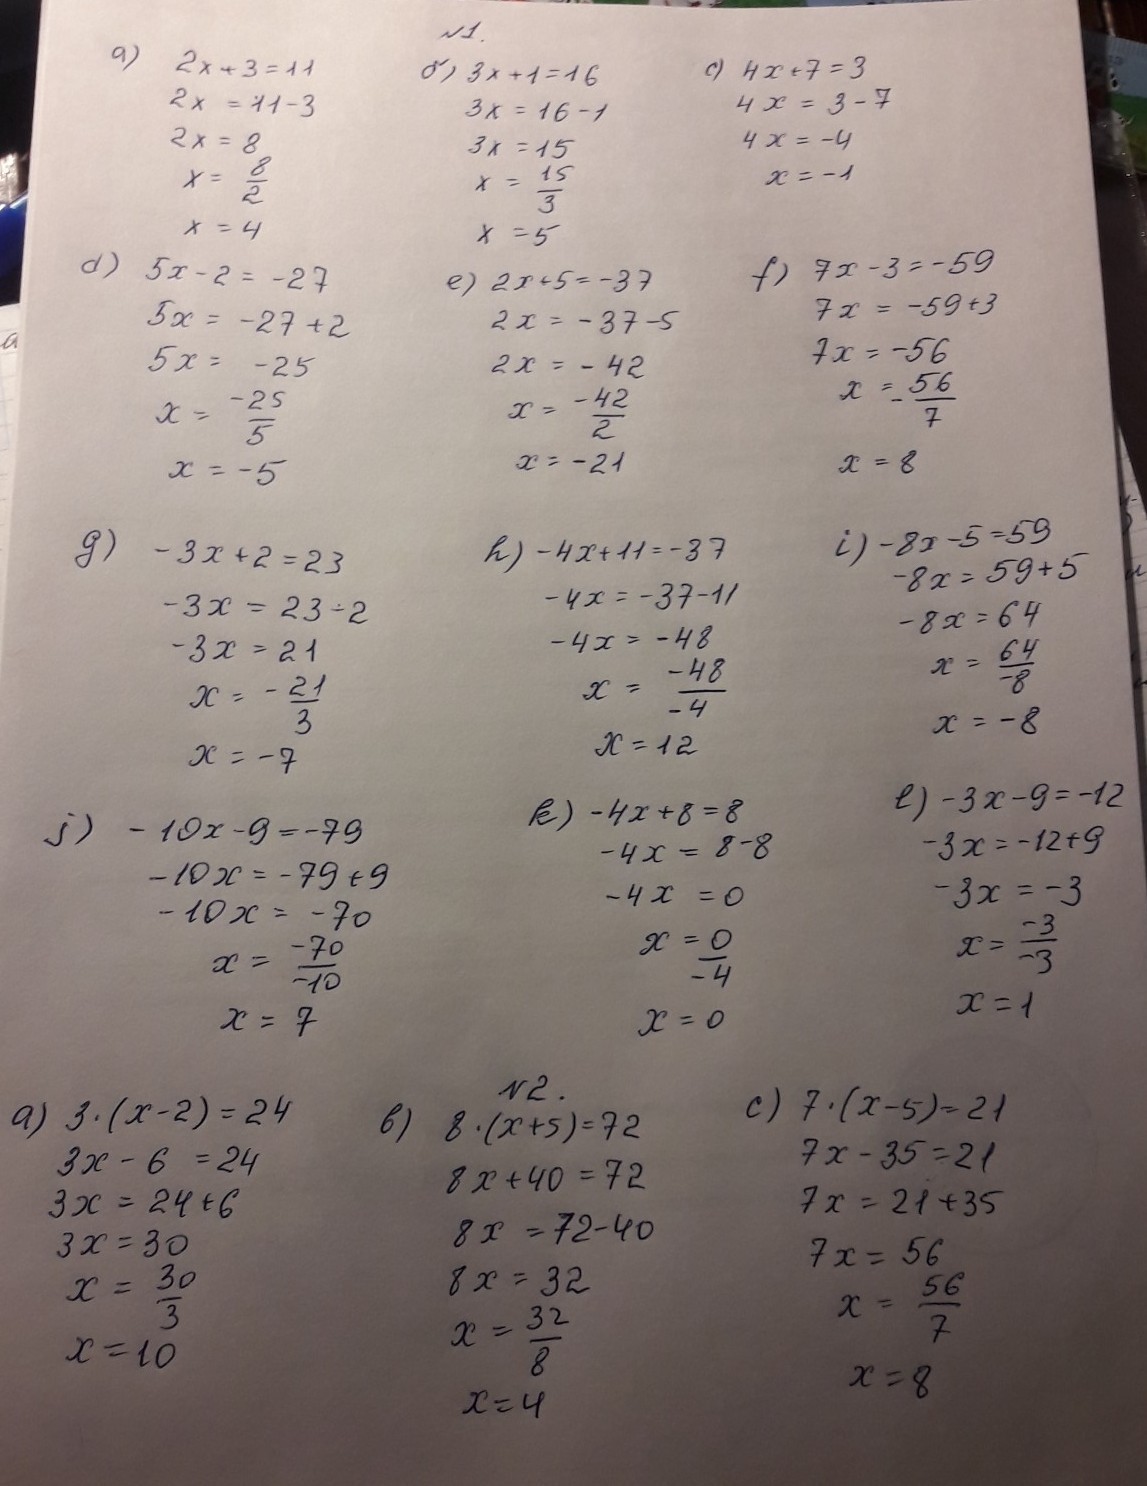 №1.
a) 2x+3=11
2x = 11-3
2x = 8
x = 8/2
x = 4
б) 3x+1=16
3x = 16-1
3x = 15
x = 15/3
x = 5
c) 4x+7=3
4x = 3-7
4x = -4
x = -1
d) 5x-2 = -27
5x = -27+2
5x = -25
x = -25/5
x = -5
e) 2x+5=-37
2x = -37-5
2x = -42
x = -42/2
x = -21
f) 7x-3=-59
7x = -59+3
7x = -56
x = -56/7
x = 8
g) -3x+2=23
-3x = 23-2
-3x = 21
x = -21/3
x = -7
h) -4x+11=-37
-4x = -37-11
-4x = -48
x = -48/-4
x = 12
i) -8x-5=59
-8x = 59+5
-8x = 64
x = 64/-8
x = -8
j) -10x-9=-79
-10x = -79+9
-10x = -70
x = -70/-10
x = 7
k) -4x+8=8
-4x = 8-8
-4x = 0
x = 0/-4
x = 0
l) -3x-9=-12
-3x = -12+9
-3x = -3
x = -3/-3
x = 1
№2.
a) 3·(x-2)=24
3x-6 = 24
3x = 24+6
3x = 30
x = 30/3
x = 10
b) 8·(x+5)=72
8x+40=72
8x = 72-40
8x = 32
x = 32/8
x = 4
c) 7·(x-5)=21
7x-35=21
7x = 21+35
7x = 56
x = 56/7
x = 8